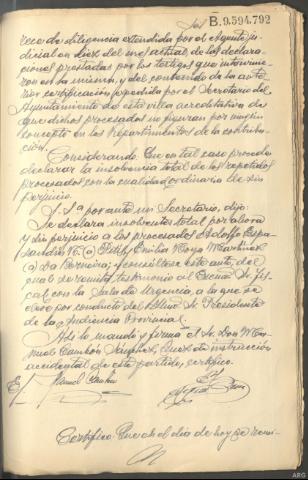 B.9.594.792
diligencia extendida por el Agente ju-
dicial en diez del mes actual, de las declara-
ciones prestadas por los testigos que intervinie-
ron en la misma, y del contenido de la ante-
rior certificación expedida por el Secretario del
Ayuntamiento de esta villa acreditativa de
que dichos procesados no figuran por ningún
concepto en los Repartimientos de la contribu-
ción.
Considerando: Que en tal caso procede
declarar la insolvencia total de los repetidos
procesados con la cualidad ordinaria de sin
perjuicio.
S. Sª por ante mi Secretario, dijo:
Se declara insolventes total por ahora
y sin perjuicio a los procesados Adolfo Espa-
(a) Petit, Emilia Moya Martínez
(a) La y consúltese este auto, del
cual se remita testimonio al Fis-
cal con la Sala de Urgencia, a la que se
por conducto del Iltmo. Sr. Presidente
de la Audiencia Provincial.
Así lo mandó y firma el Sr. Don Ma-
nuel Sánchez, Juez de instrucción
accidental de este partido, certifico.
Manuel
Certifico: Que en el día de hoy se remi-
ARG